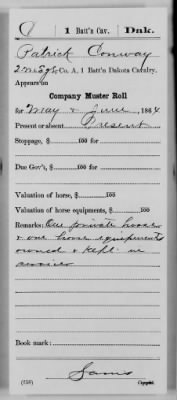 C 1 Batt'n Cav. Dak.
Patrick Conway
2nd Sgt, Co. A, 1 Batt'n Dakota Cavalry.
Appears on
Company Muster Roll
for May & June, 1864
Present or absent Present
Stoppage, $ 100 for
Due Gov't, $ 100 for
Valuation of horse, $ 100
Valuation of horse equipments, $ 100
Remarks: One private horse
& one horse equipments
owned & kept in
service
Book mark:
(358) Copyist.